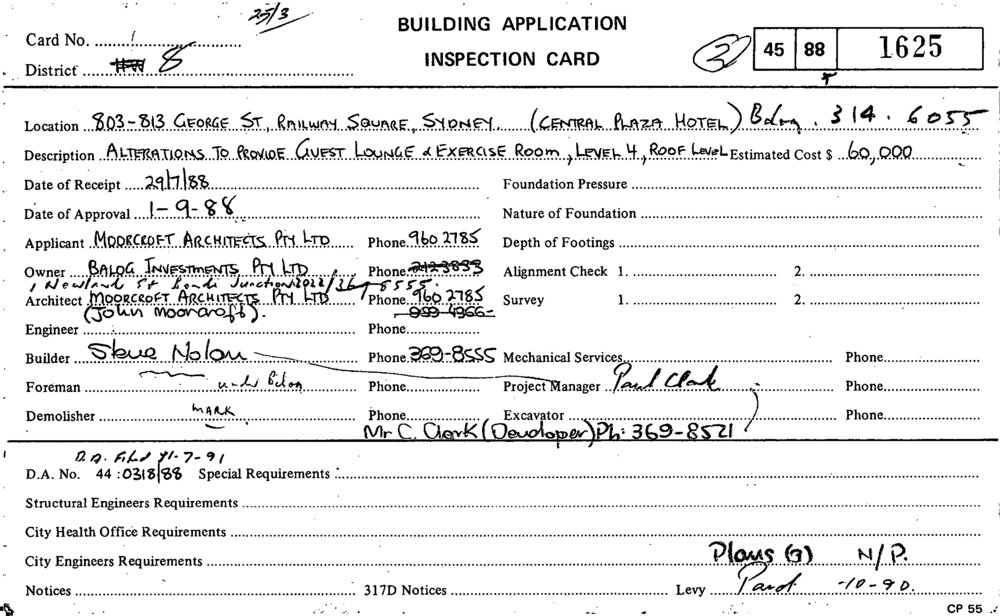 25/3
BUILDING APPLICATION
INSPECTION CARD
Card No. 1
District 8
2 45 88 1625
Location 803-813 GEORGE ST, RAILWAY SQUARE, SYDNEY. (CENTRAL PLAZA HOTEL) Bdng. 314.6055
Description ALTERATIONS TO PROVIDE GUEST LOUNGE & EXERCISE ROOM, LEVEL 4, ROOF LEVEL Estimated Cost $ 60,000
Date of Receipt 29/7/88 Foundation Pressure
Date of Approval 1-9-88 Nature of Foundation
Applicant MOORCROFT ARCHITECTS PTY LTD Phone 960 2785 Depth of Footings
Owner BALOG INVESTMENTS PTY LTD Phone 212 3833 Alignment Check 1. 2.
1 Newland St Bondi Junction 2022/369 8555
Architect MOORCROFT ARCHITECTS PTY LTD Phone 960 2785 Survey 1. 2.
(John Moorcroft). 999-4966
Engineer Phone
Builder Steve Nolan Phone 369-8555 Mechanical Services Phone
Foreman under Balog Phone Project Manager Paul Clark Phone
Demolisher MARK Phone Excavator Phone
Mr C. Clark (Developer) Ph: 369-8521
D.A. Filed 11-7-91
D.A. No. 44:0318/88 Special Requirements
Structural Engineers Requirements
City Health Office Requirements
City Engineers Requirements Plans (3) N/P.
Notices 317D Notices Levy -10-90.
CP 55